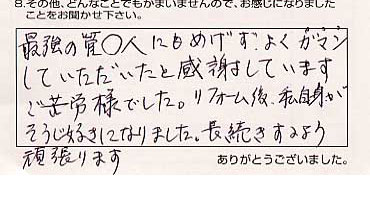 8.その他、どんなことでもかまいませんので、お感じになりました
ことをお聞かせ下さい。
最強の管〇人にもめげず、よくガマン
していただいたと感謝しています
ご苦労様でした。リフォーム後、私自身が
そうじ好きになりました。長続きするよう
頑張ります
ありがとうございました。